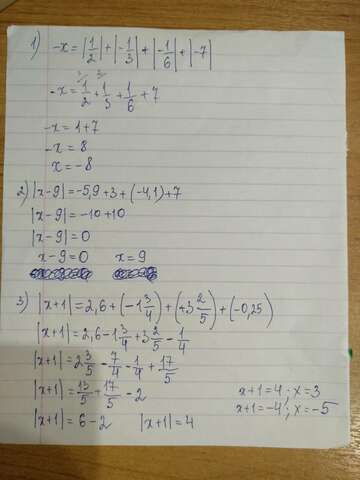 1) -x = |1/2| + |-1/3| + |-1/6| + |-7|
-x = 1/2 + 1/3 + 1/6 + 7
-x = 1+7
-x = 8
x = -8
2) |x-9| = -5,9+3+(-4,1)+7
|x-9| = -10+10
|x-9| = 0
x-9=0 x=9
3) |x+1| = 2,6+(-1 3/4)+(+3 2/5)+(-0,25)
|x+1| = 2,6-1 3/4+3 2/5-1/4
|x+1| = 2 3/5 - 7/4 - 1/4 + 17/5
|x+1| = 13/5 + 17/5 - 2
|x+1| = 6-2 |x+1| = 4
x+1=4; x=3
x+1=-4; x=-5